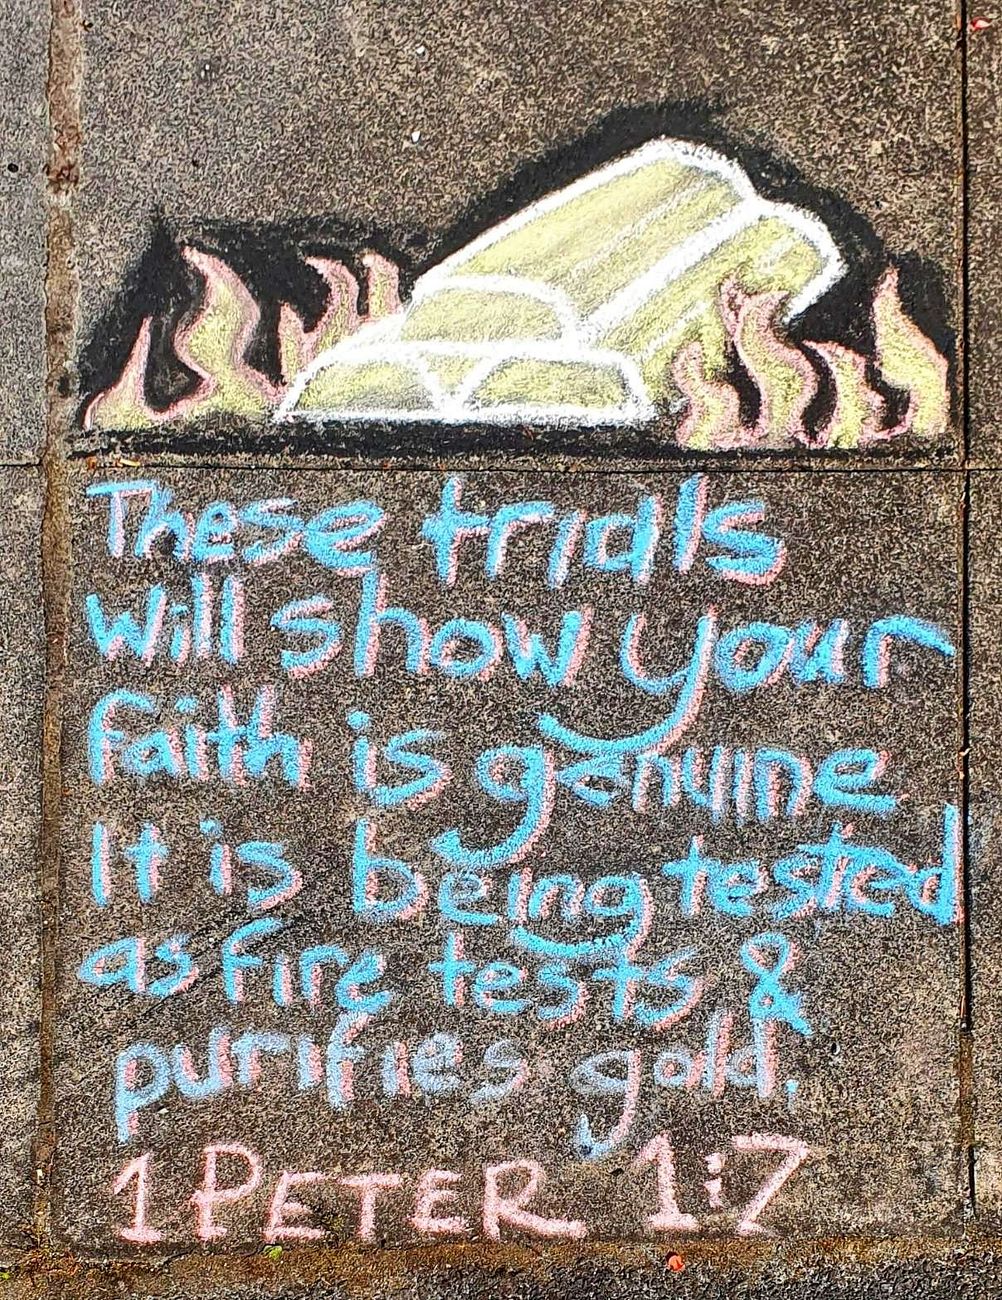 These trials
will show your
faith is genuine
It is being tested
as fire tests &
purifies gold.
1 PETER 1:7